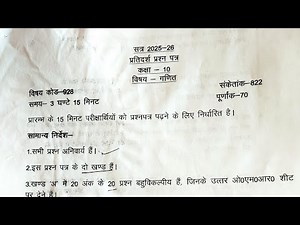 सत्र 2025-26
प्रतिदर्श प्रश्न पत्र
कक्षा - 10
विषय - गणित
विषय कोड-928
संकेतांक-822
समय- 3 घण्टे 15 मिनट
पूर्णांक-70
प्रारम्भ के 15 मिनट परीक्षार्थियों को प्रश्नपत्र पढ़ने के लिए निर्धारित है।
सामान्य निर्देश-
1.सभी प्रश्न अनिवार्य हैं।
2.इस प्रश्न पत्र के दो खण्ड हैं।
3.खण्ड 'अ' में 20 अंक के 20 प्रश्न बहुविकल्पीय हैं, जिनके उत्तर ओ0एम0आर0 शीट
पर देने हैं।